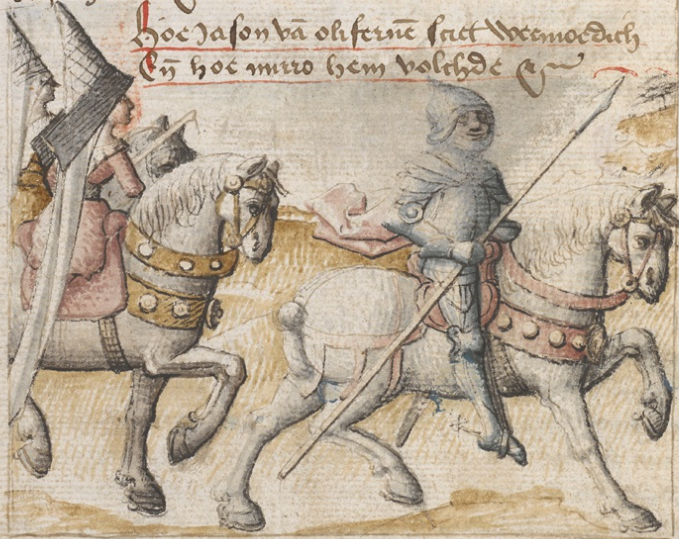 Hoe Jason vā oliferne sciet weemoedich
Eñ hoe mirro hem volchde